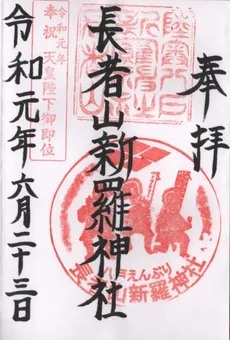 奉拝
長者山新羅神社
令和元年六月二十三日
令和元年
奉祝 天皇陛下御即位
八戸えんぶり
長者山新羅神社